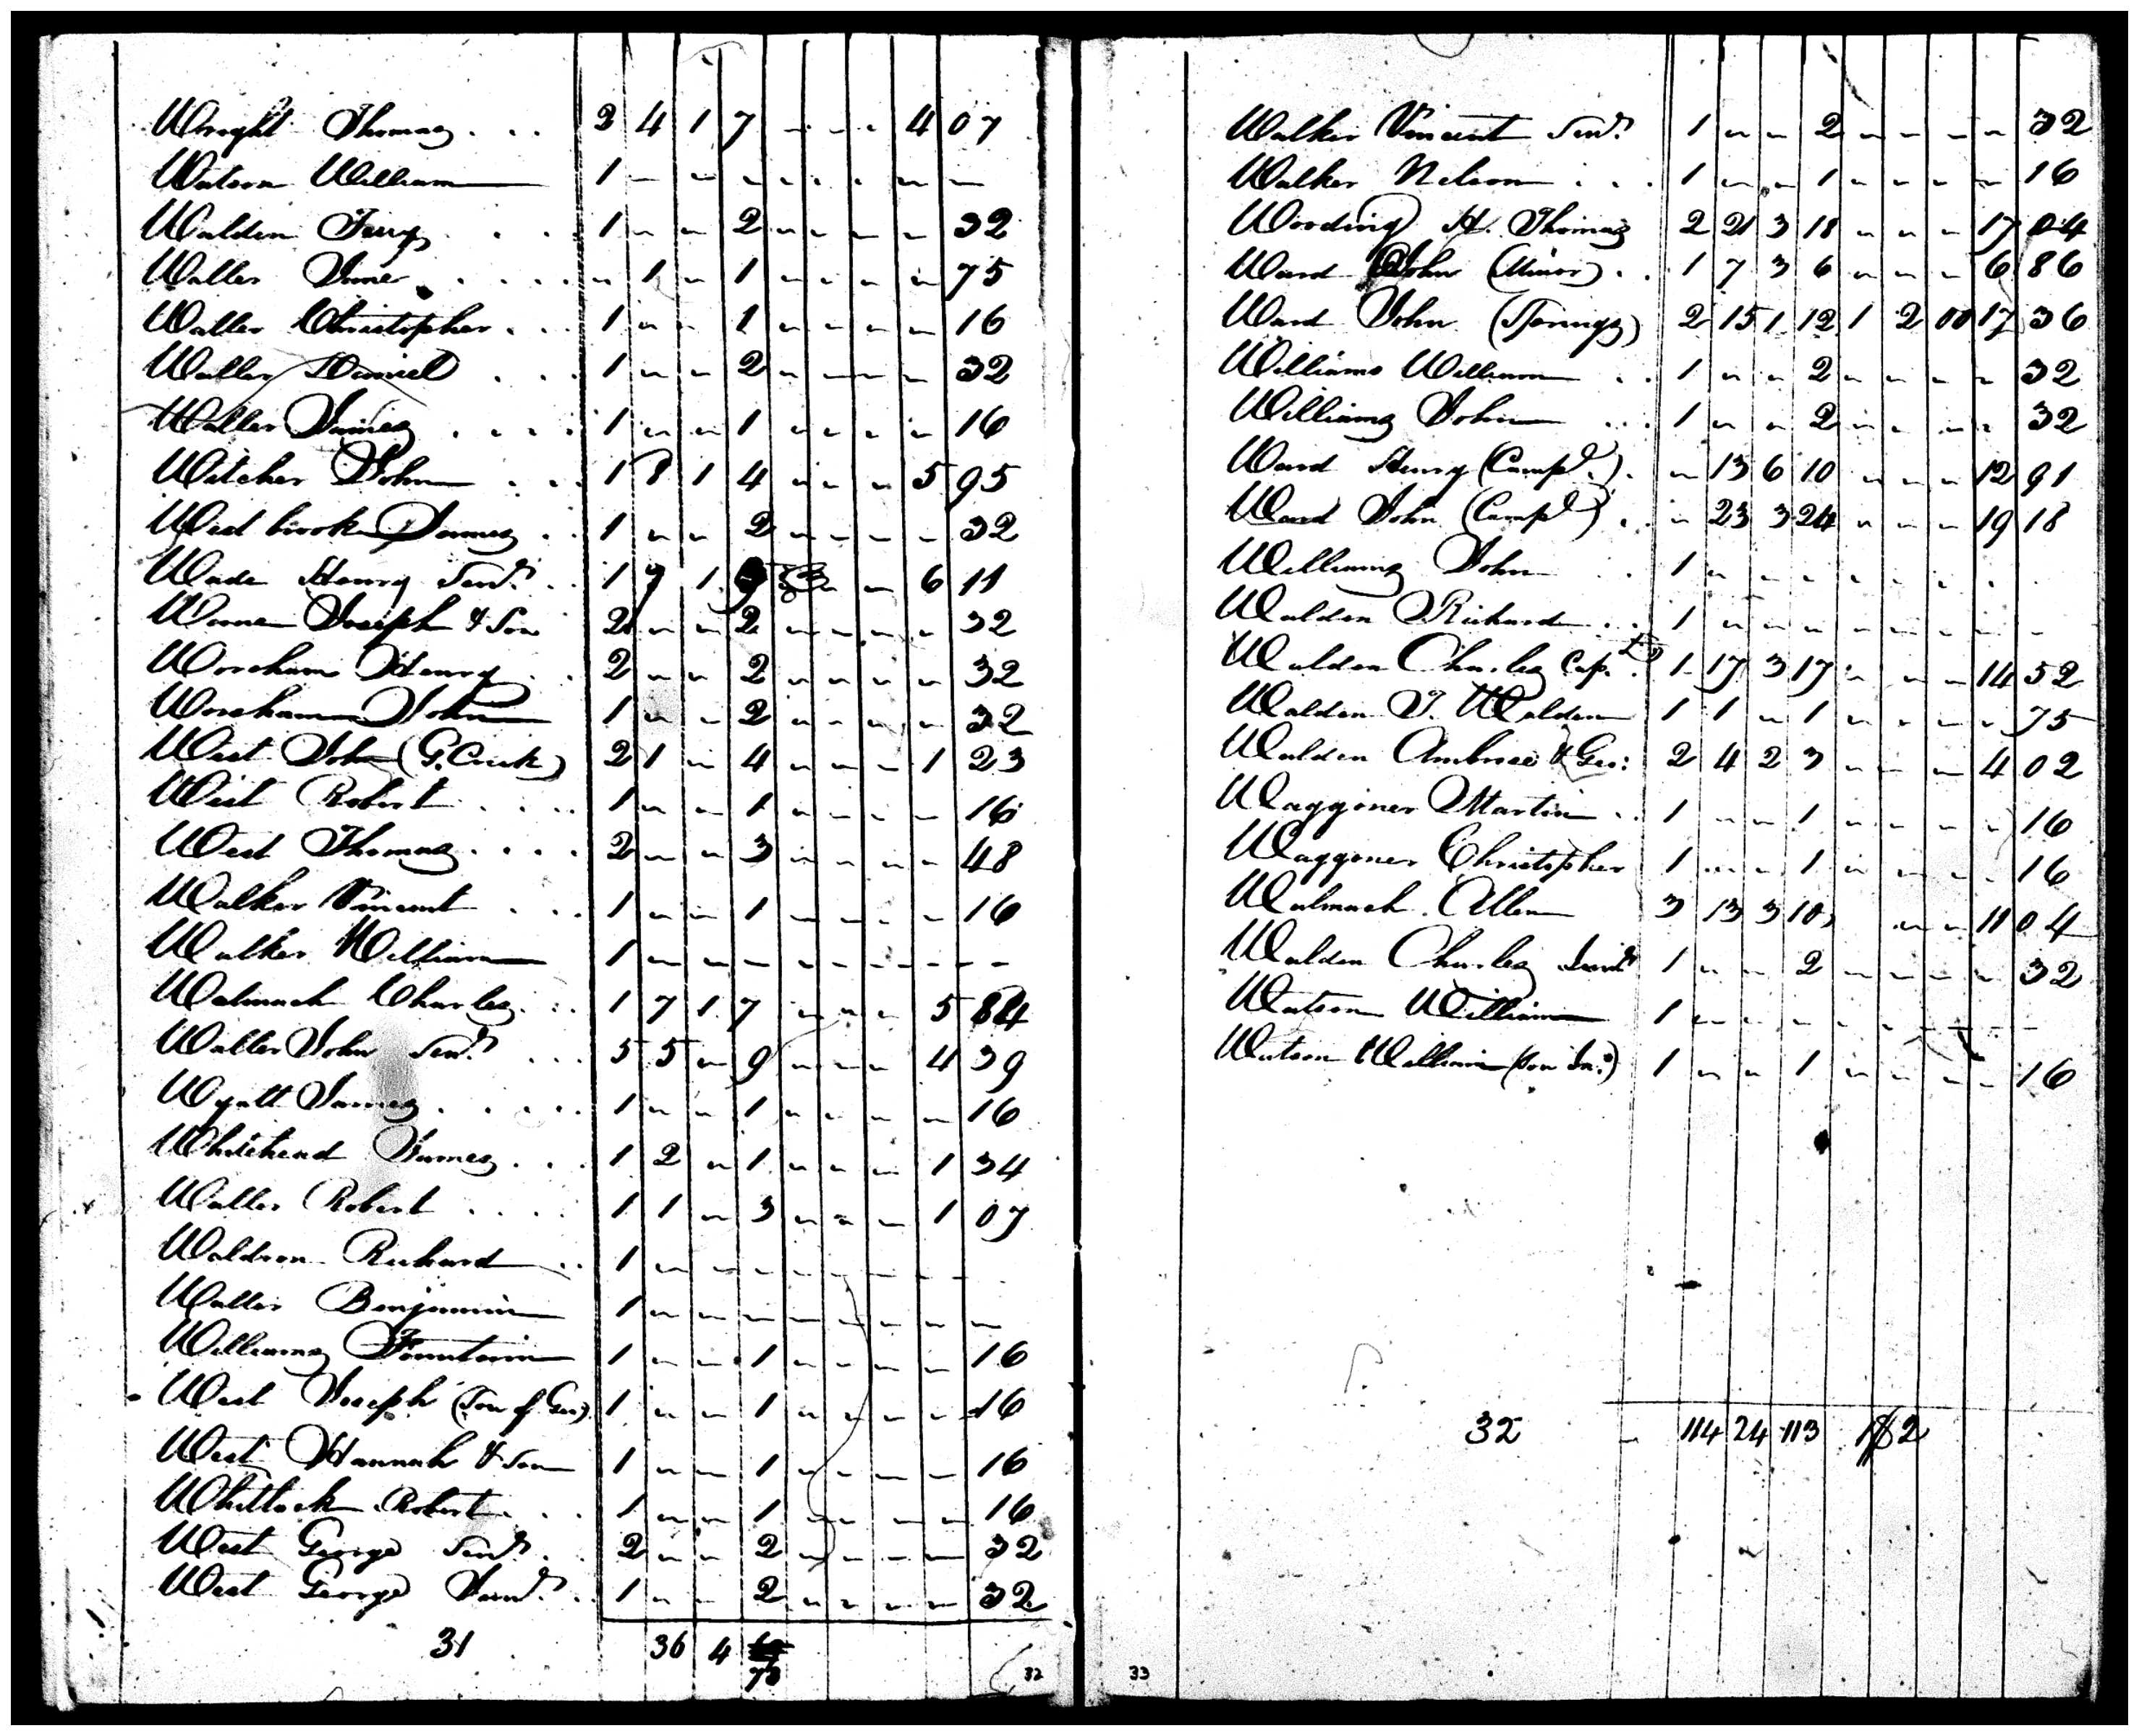 Wright Thomas . . . 2 4 1 7 - - - 4 07
Watson William 1 - - - - - - - -
Walden Jerry . . . 1 - - 2 - - - - 32
Waller . . . . - 1 - 1 - - - - 75
Waller Christopher . . . 1 - - 1 - - - - 16
Waller Daniel . . . 1 - - 2 - - - - 32
Waller James . . . . 1 - - 1 - - - - 16
Witcher John . . . 1 8 1 4 - - - 5 95
West brook James . . 1 - - 2 - - - - 32
Wade Henry Senr. . . 1 9 1 - - 6 11
Worne Joseph & Son 2 - - 2 - - - - 32
Worsham Henry . . 2 - - 2 - - - - 32
Worsham John 1 - - 2 - - - - 32
West John (G. Creek) 2 1 - 4 - - - 1 23
West Robert . . . . 1 - - 1 - - - - 16
West Thomas . . . . 2 - - 3 - - - - 48
Walker Vincent . . . 1 - - 1 - - - - 16
Walker William 1 - - - - - - - -
Walmack Charles . . . 1 7 1 7 - - - 5 84
Waller John Senr. . . . 5 5 - 9 - - - 4 39
Wyatt James . . . . . 1 - - 1 - - - - 16
Whitehead James . . . 1 2 - 1 - - - 1 34
Waller Robert . . . . 1 1 - 3 - - - 1 07
Waldron Richard . . 1 - - - - - - -
Waller Benjamin 1 - - - - - - - -
Williams Fountain 1 - - 1 - - - - 16
West Joseph (Son of Geo) 1 - - 1 - - - - 16
West Hannah & Son 1 - - 1 - - - - 16
Whitlock Robert . . . 1 - - 1 - - - - 16
West George Senr. . 2 - - 2 - - - - 32
West George Junr. . . 1 - - 2 - - - - 32
31 36 4 73
32
Walker Vincent Senr. 1 - - 2 - - - - 32
Walker Nelson . . . 1 - - 1 - - - - 16
Wooding H. Thomas 2 21 3 18 - - - 17 04
Ward John (Minor) . . 1 7 3 6 - - - 6 86
Ward John (Springs) 2 15 1 12 1 2 00 17 36
Williams William . . 1 - - 2 - - - - 32
Williams John . . . 1 - - 2 - - - - 32
Ward Henry (Campl.) . - 13 6 10 - - - 12 91
Ward John (Campl) . . - 23 3 24 - - - 19 18
Williams John . . 1 - - - - - - -
Walden Richard . . . 1 - - - - - - - -
Walden Charles Cap. 1 17 3 17 - - - 14 52
Walden J. Walden 1 1 - 1 - - - - 75
Walden Ambrose & Geo: 2 4 2 3 - - - 4 02
Waggoner Martin . . 1 - - 1 - - - - 16
Waggoner Christopher 1 - - 1 - - - - 16
Walmack Allen 3 13 3 18 - - 11 04
Walden Charles Junr 1 - - 2 - - - - 32
Watson William 1 - - - - - - - -
Watson William (son Jn.) 1 - - 1 - - - - 16
32 - 114 24 113 2
33